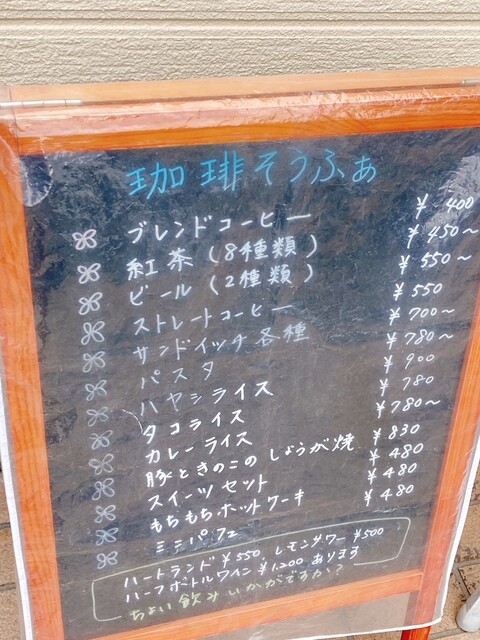 珈琲そうふぁ
ブレンドコーヒー ¥400
紅茶(8種類) ¥450～
ビール(2種類) ¥550～
ストレートコーヒー ¥550
サンドイッチ各種 ¥700～
パスタ ¥780～
ハヤシライス ¥900
タコライス ¥780
カレーライス ¥780～
豚ときのこのしょうが焼 ¥830
スイーツセット ¥480
もちもちホットケーキ ¥480
ミニパフェ ¥480
ハートランド¥550, レモンサワー¥500
ハーフボトルワイン¥1,200 あります
ちょい飲みいかがですか?